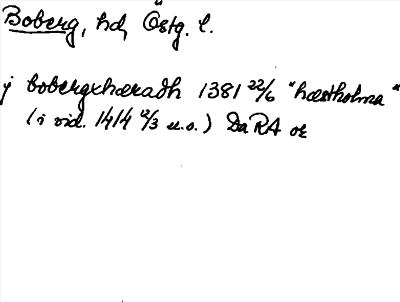 Boberg, hd, Östg. l.
j bobergxhæradh 1381 22/6 "hæstholma"
(i vid. 1414 12/3 u.o.) Da RA or